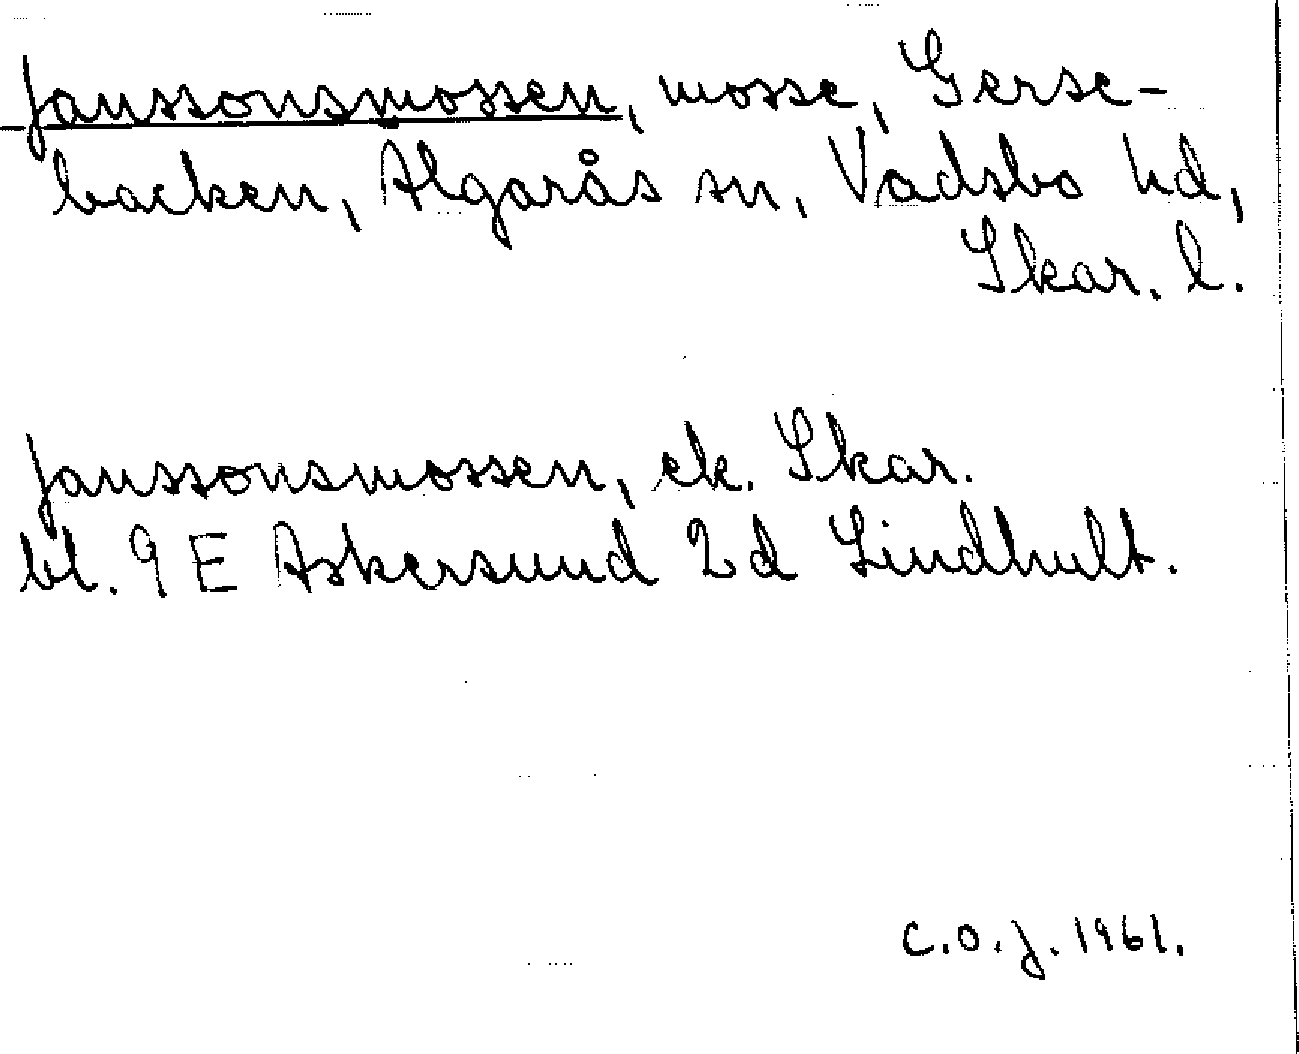 Janssonsmossen, mosse, Gerse-
backen, Algarås sn, Vadsbo hd,
Skar. l.
Janssonsmossen, ek. Skar.
bl. 9 E Askersund 2d Lindhult.
C.O.J. 1961.